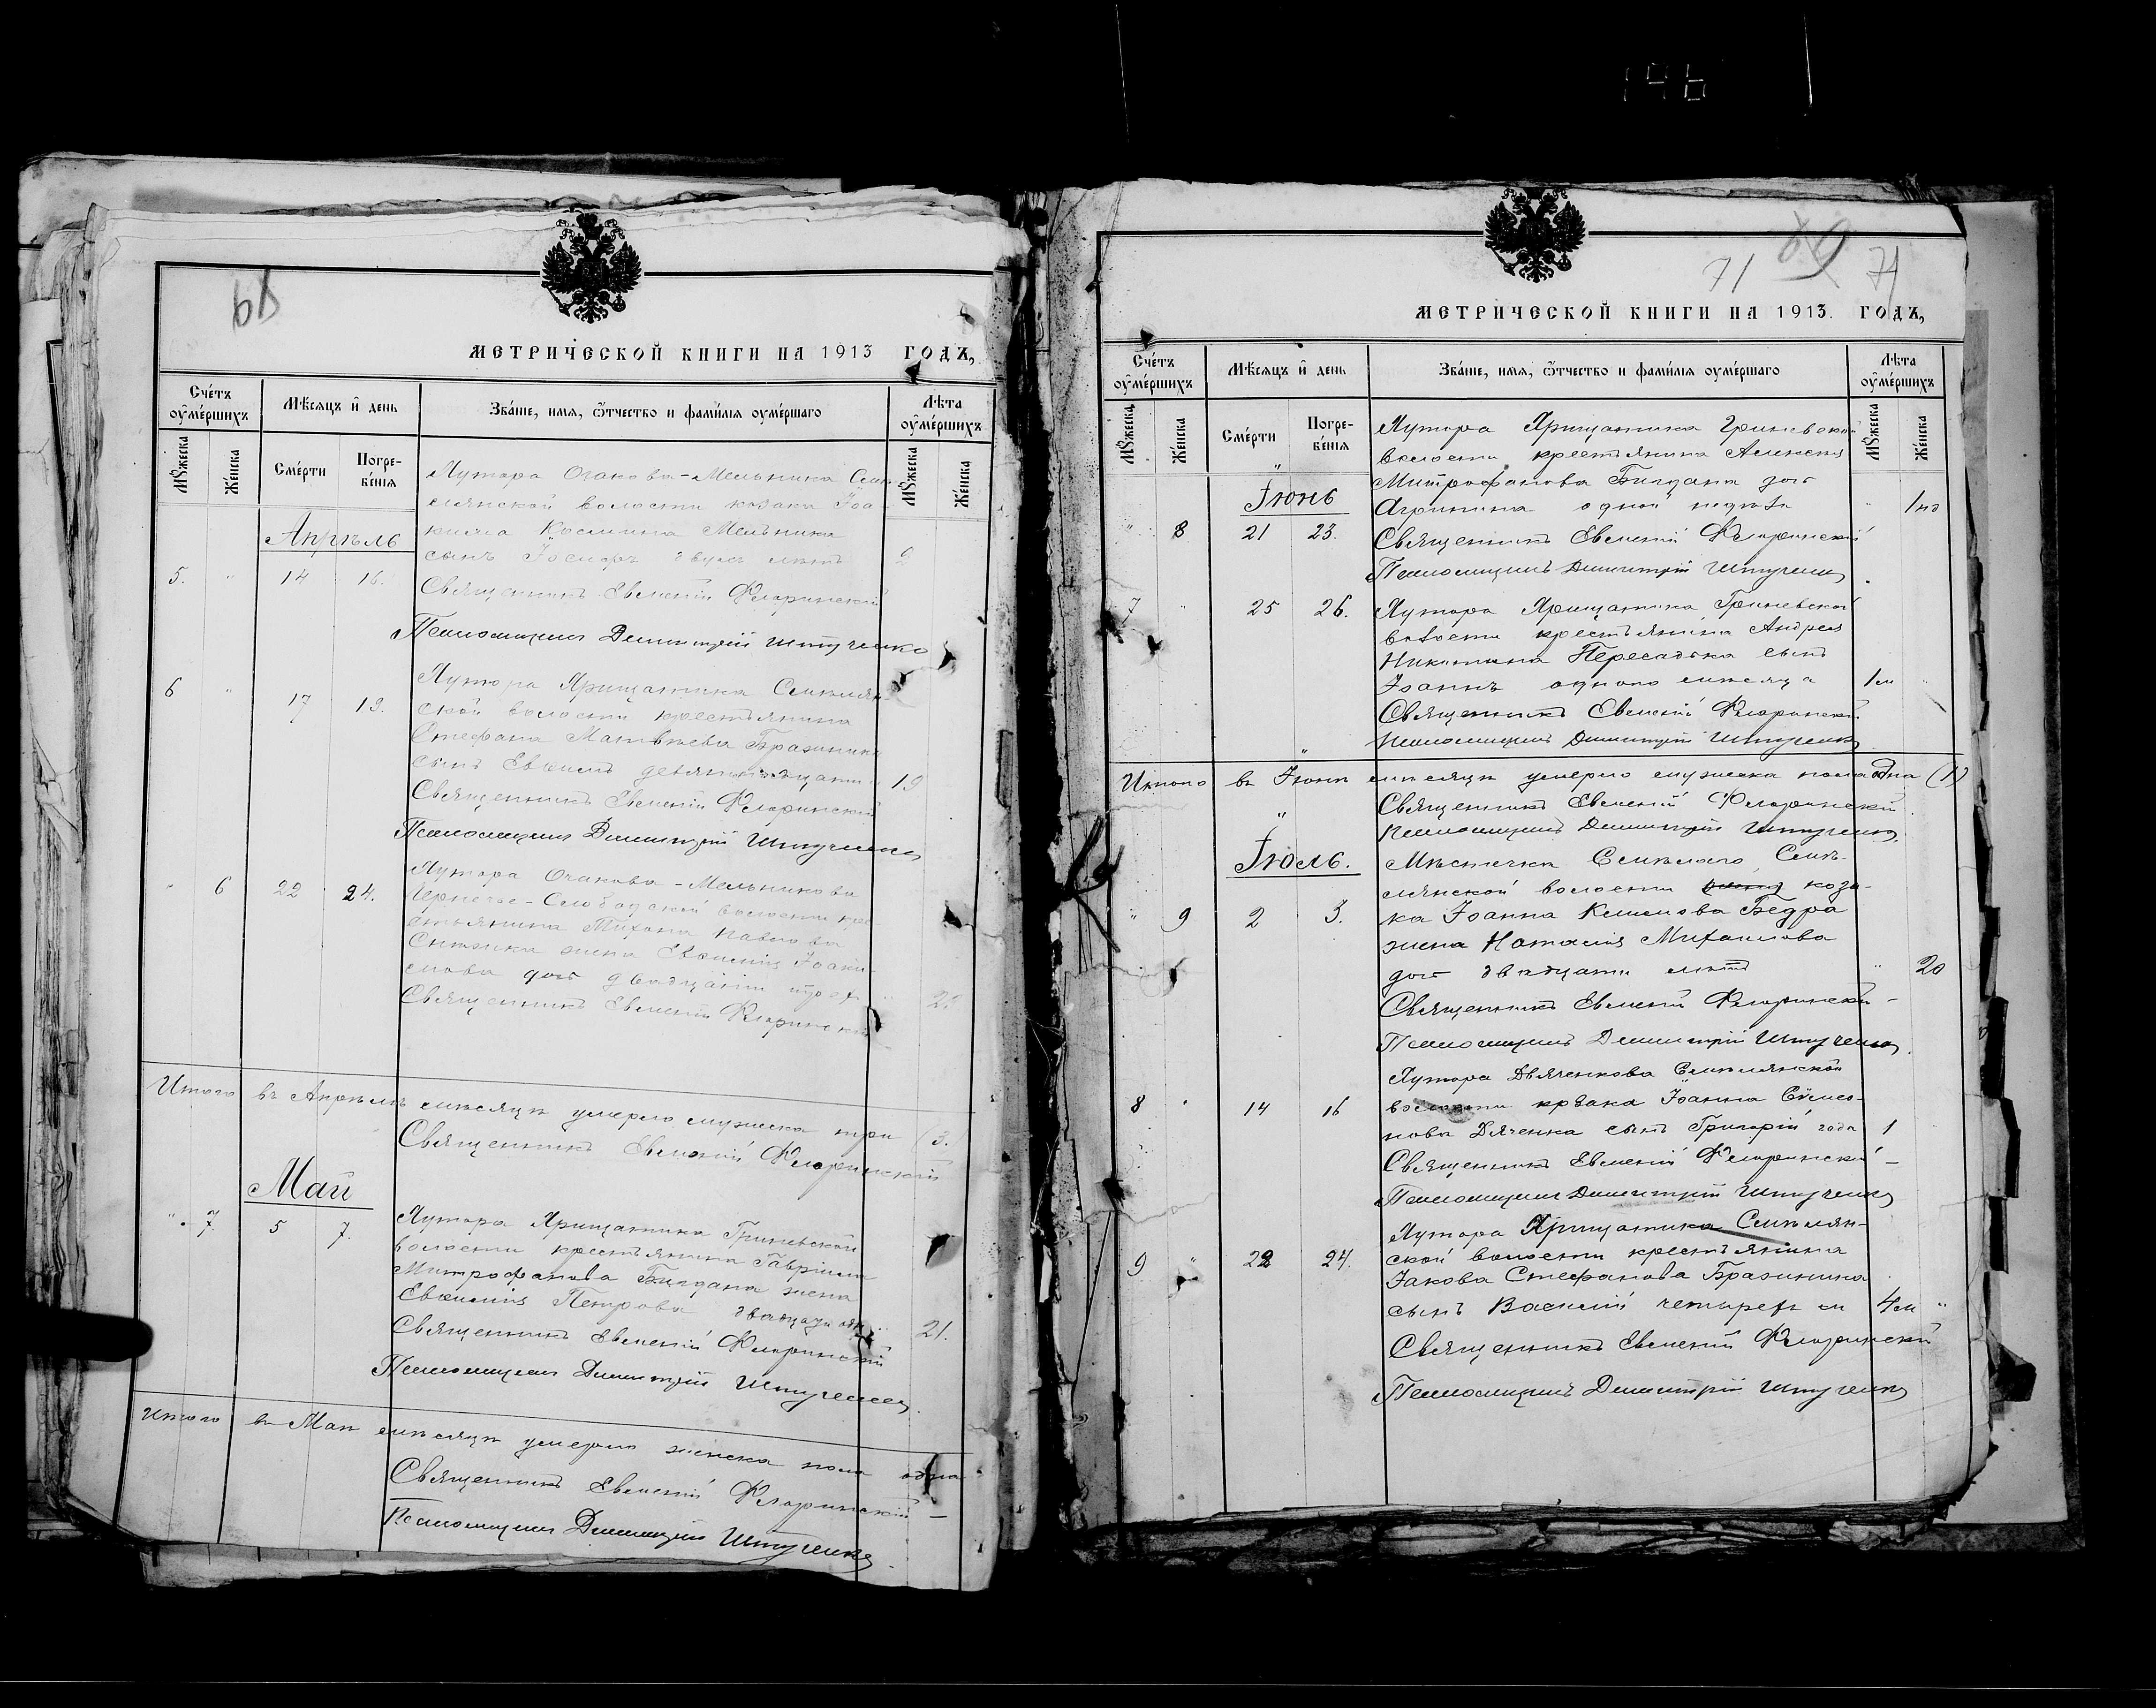 146
68
МЕТРИЧЕСКОЙ КНИГИ НА 1913 ГОДЪ,
Сче́тъ оуме́ршихъ
Мѣсяцъ и день
Зва́ніе, имя, ѿтчество и фами́лія оуме́ршаго
Лѣта оуме́ршихъ
Мꙋжеска
Же́нска
Сме́рти
Погребе́нія
Мꙋжеска
Же́нска
Хутора Очакова-Мельника Семи-
Апрѣль
лянской волости козака Іоа-
кима Косьмина Мельника
сынъ Іосифъ двухъ лѣтъ 2
5. " 14 16.
Священникъ Евменій Флоринскій
Псаломщикъ Димитрій Штученко
6 " 17 19.
Хутора Хрищатика Семилян-
ской волости крестьянина
Стефана Матвѣева Бражника
сынъ Евѳимъ девятнадцати 19
Священникъ Евменій Флоринскій
Псаломщикъ Димитрій Штученко
" 6 22 24.
Хутора Очакова-Мельникова
волости кре
стьянина Тихона Павлова
жена Евѳимія Іоаки-
мова доч двадцати трех
Священникъ Евменій Флоринскій
Итого въ Апрѣлѣ мѣсяцѣ умерло мужеска три (3.)
Священникъ Евменій Флоринскій
Май
" 7. 5 7.
Хутора Хрищатика Гриневской
волости крестьянина Гавріила
Митрофанова Бигдана жена
Евѳимія Петрова двадцати одн " 21.
Священникъ Евменій Флоринскій
Псаломщикъ Димитрій Штученко
Итого въ Маѣ мѣсяцѣ умерло женска пола одна
Священникъ Евменій Флоринскій
Псаломщикъ Димитрій Штученко
71 71
МЕТРИЧЕСКОЙ КНИГИ НА 1913. ГОДЪ,
Сче́тъ оуме́ршихъ
Мѣсяцъ и день
Зва́ніе, имя, ѿтчество и фами́лія оуме́ршаго
Лѣта оуме́ршихъ
Мꙋжеска
Же́нска
Сме́рти
Погребе́нія
Мꙋжеска
Же́нска
Хутора Хрищатика Гриневской
волости крестьянина Алексѣя
Митрофанова Бигдана доч
Іюнь
Агрипина одной недѣли " 1нд
" 8 21 23.
Священникъ Евменій Флоринскій
Псаломщикъ Димитрій Штученко
7 " 25 26.
Хутора Хрищатика Гриневской
волости крестьянина Андрея
Никитина Пересадька сынъ
Іоаннъ одного мѣсяца 1м "
Священникъ Евменій Флоринскій
Псаломщикъ Димитрій Штученко
Итого въ Іюнѣ мѣсяцѣ умерло мужеска пола одна (1)
Священникъ Евменій Флоринскій
Псаломщикъ Димитрій Штученко
Іюль.
Мѣстечка Семѣлаго Семѣ-
лянской волости коза-
" 9 2 3.
ка Іоанна Климова Бедра
жена Наталія Михаилова
доч двадцати лѣтъ " 20
Священникъ Евменій Флоринскій
Псаломщикъ Димитрій Штученко
Хутора Дьяченкова Семѣлянской
8 " 14 16
волости козака Іоанна Сѵмео-
нова Дяченка сынъ Григорій года 1
Священникъ Евменій Флоринскій
Псаломщикъ Димитрій Штученко
Хутора Хрищатика Семѣлян-
9 " 22 24.
ской волости крестьянина
Іакова Стефанова Бражника
сынъ Василій четырех м 4м "
Священникъ Евменій Флоринскій
Псаломщикъ Димитрій Штученко